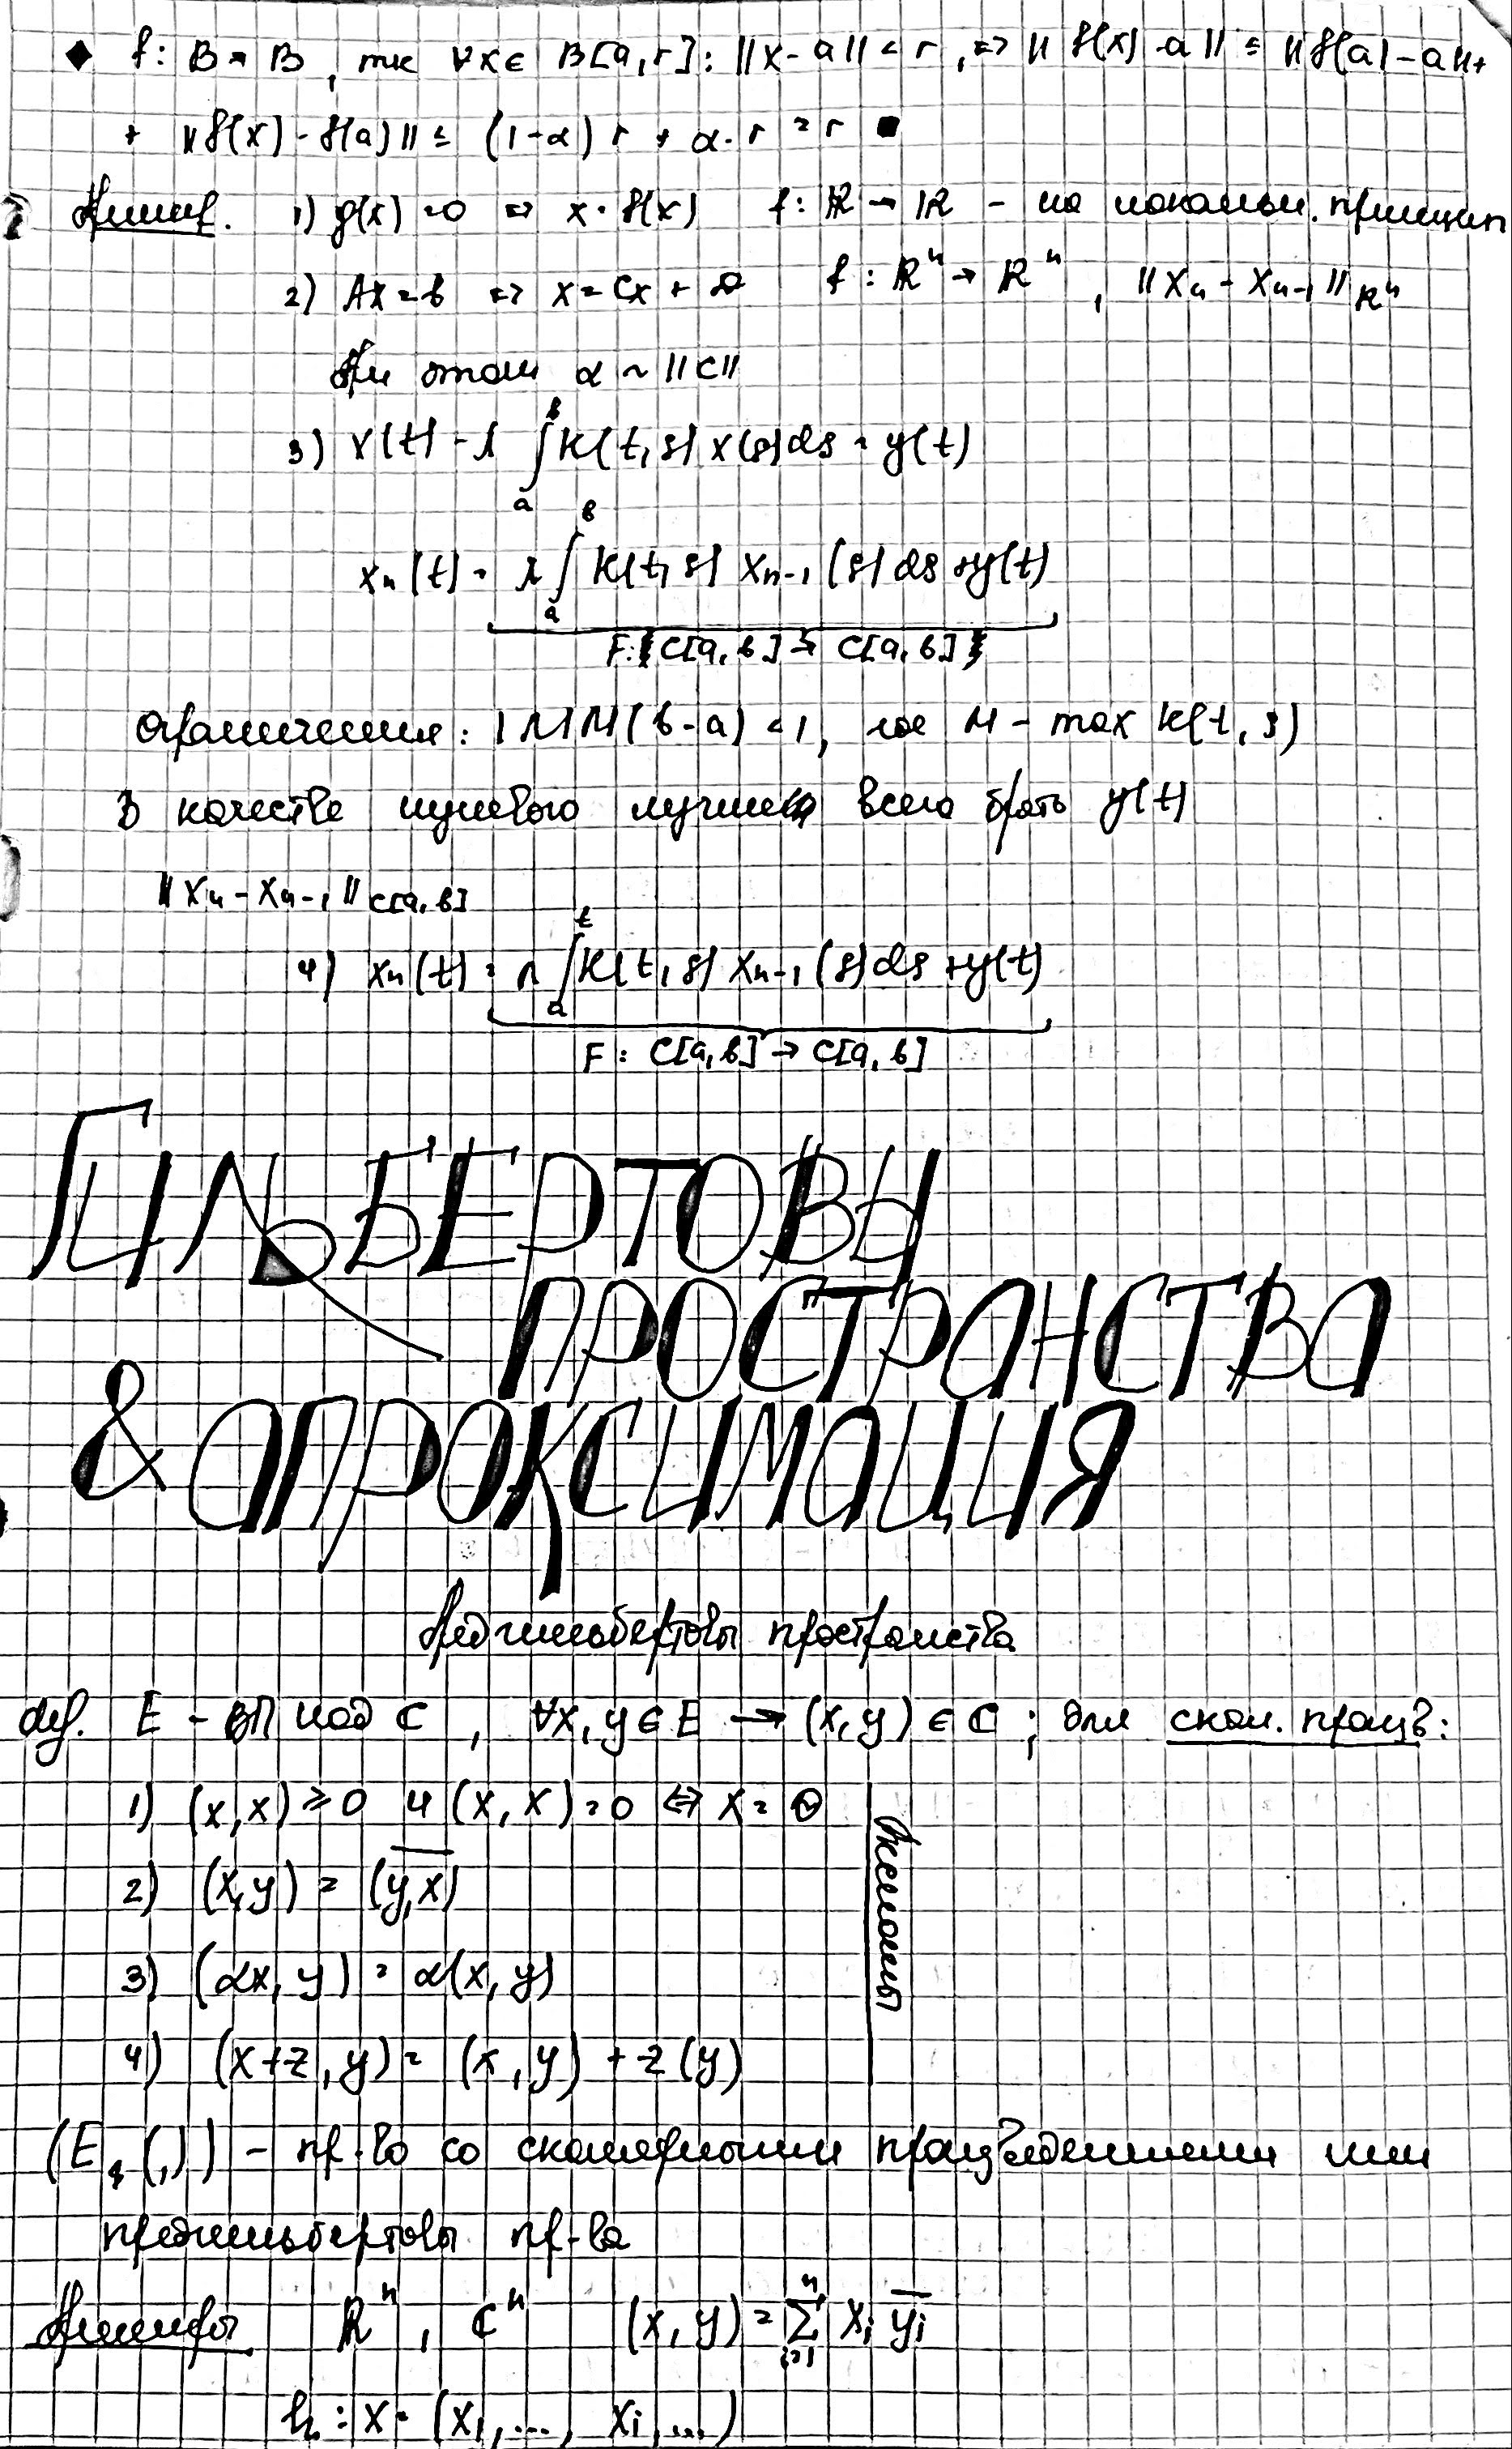 ♦ f: B → B, тк ∀x ∈ B[a,r]: ||x-a|| < r, ⇔ ||f(x)-a|| ≤ ||f(a)-a||+
+ ||f(x)-f(a)|| ≤ (1-α)r + α·r = r ■
Пример. 1) g(x)=0 ⇔ x=f(x) f: ℝ → ℝ - на локальн. принцип
2) Ax=b ⇔ x=Cx+D f: ℝⁿ → ℝⁿ, ||xₙ-xₙ₋₁||ℝⁿ
При этом α ~ ||C||
3) x(t) - λ ∫ₐᵇ K(t,s) x(s)ds = y(t)
xₙ(t) = λ ∫ₐᵇ K(t,s) xₙ₋₁(s)ds + y(t)
F: C[a,b] → C[a,b]
Ограничения: |λ|M(b-a) < 1, где M - max K(t,s)
В качестве нулевого лучше всего брать y(t)
||xₙ-xₙ₋₁||C[a,b]
4) xₙ(t) = λ ∫ₐᵗ K(t,s) xₙ₋₁(s)ds + y(t)
F: C[a,b] → C[a,b]
ГИЛЬБЕРТОВЫ
ПРОСТРАНСТВА
& АПРОКСИМАЦИЯ
Предгильбертовы пространства
def. E - ВП над ℂ, ∀x,y ∈ E → (x,y) ∈ ℂ; для скал. произв:
1) (x,x) ≥ 0 и (x,x)=0 ⇔ x=Θ
Аксиомы
2) (x,y) = \overline{(y,x)}
3) (αx,y) = α(x,y)
4) (x+z,y) = (x,y) + z(y)
(E,(,)) - пр-во со скалярными произведениями или
предгильбертовы пр-ва
Примеры ℝⁿ, ℂⁿ (x,y) = ∑ᵢ₌₁ⁿ xᵢ \overline{yᵢ}
l₂: x = (x₁,..., xᵢ,...)